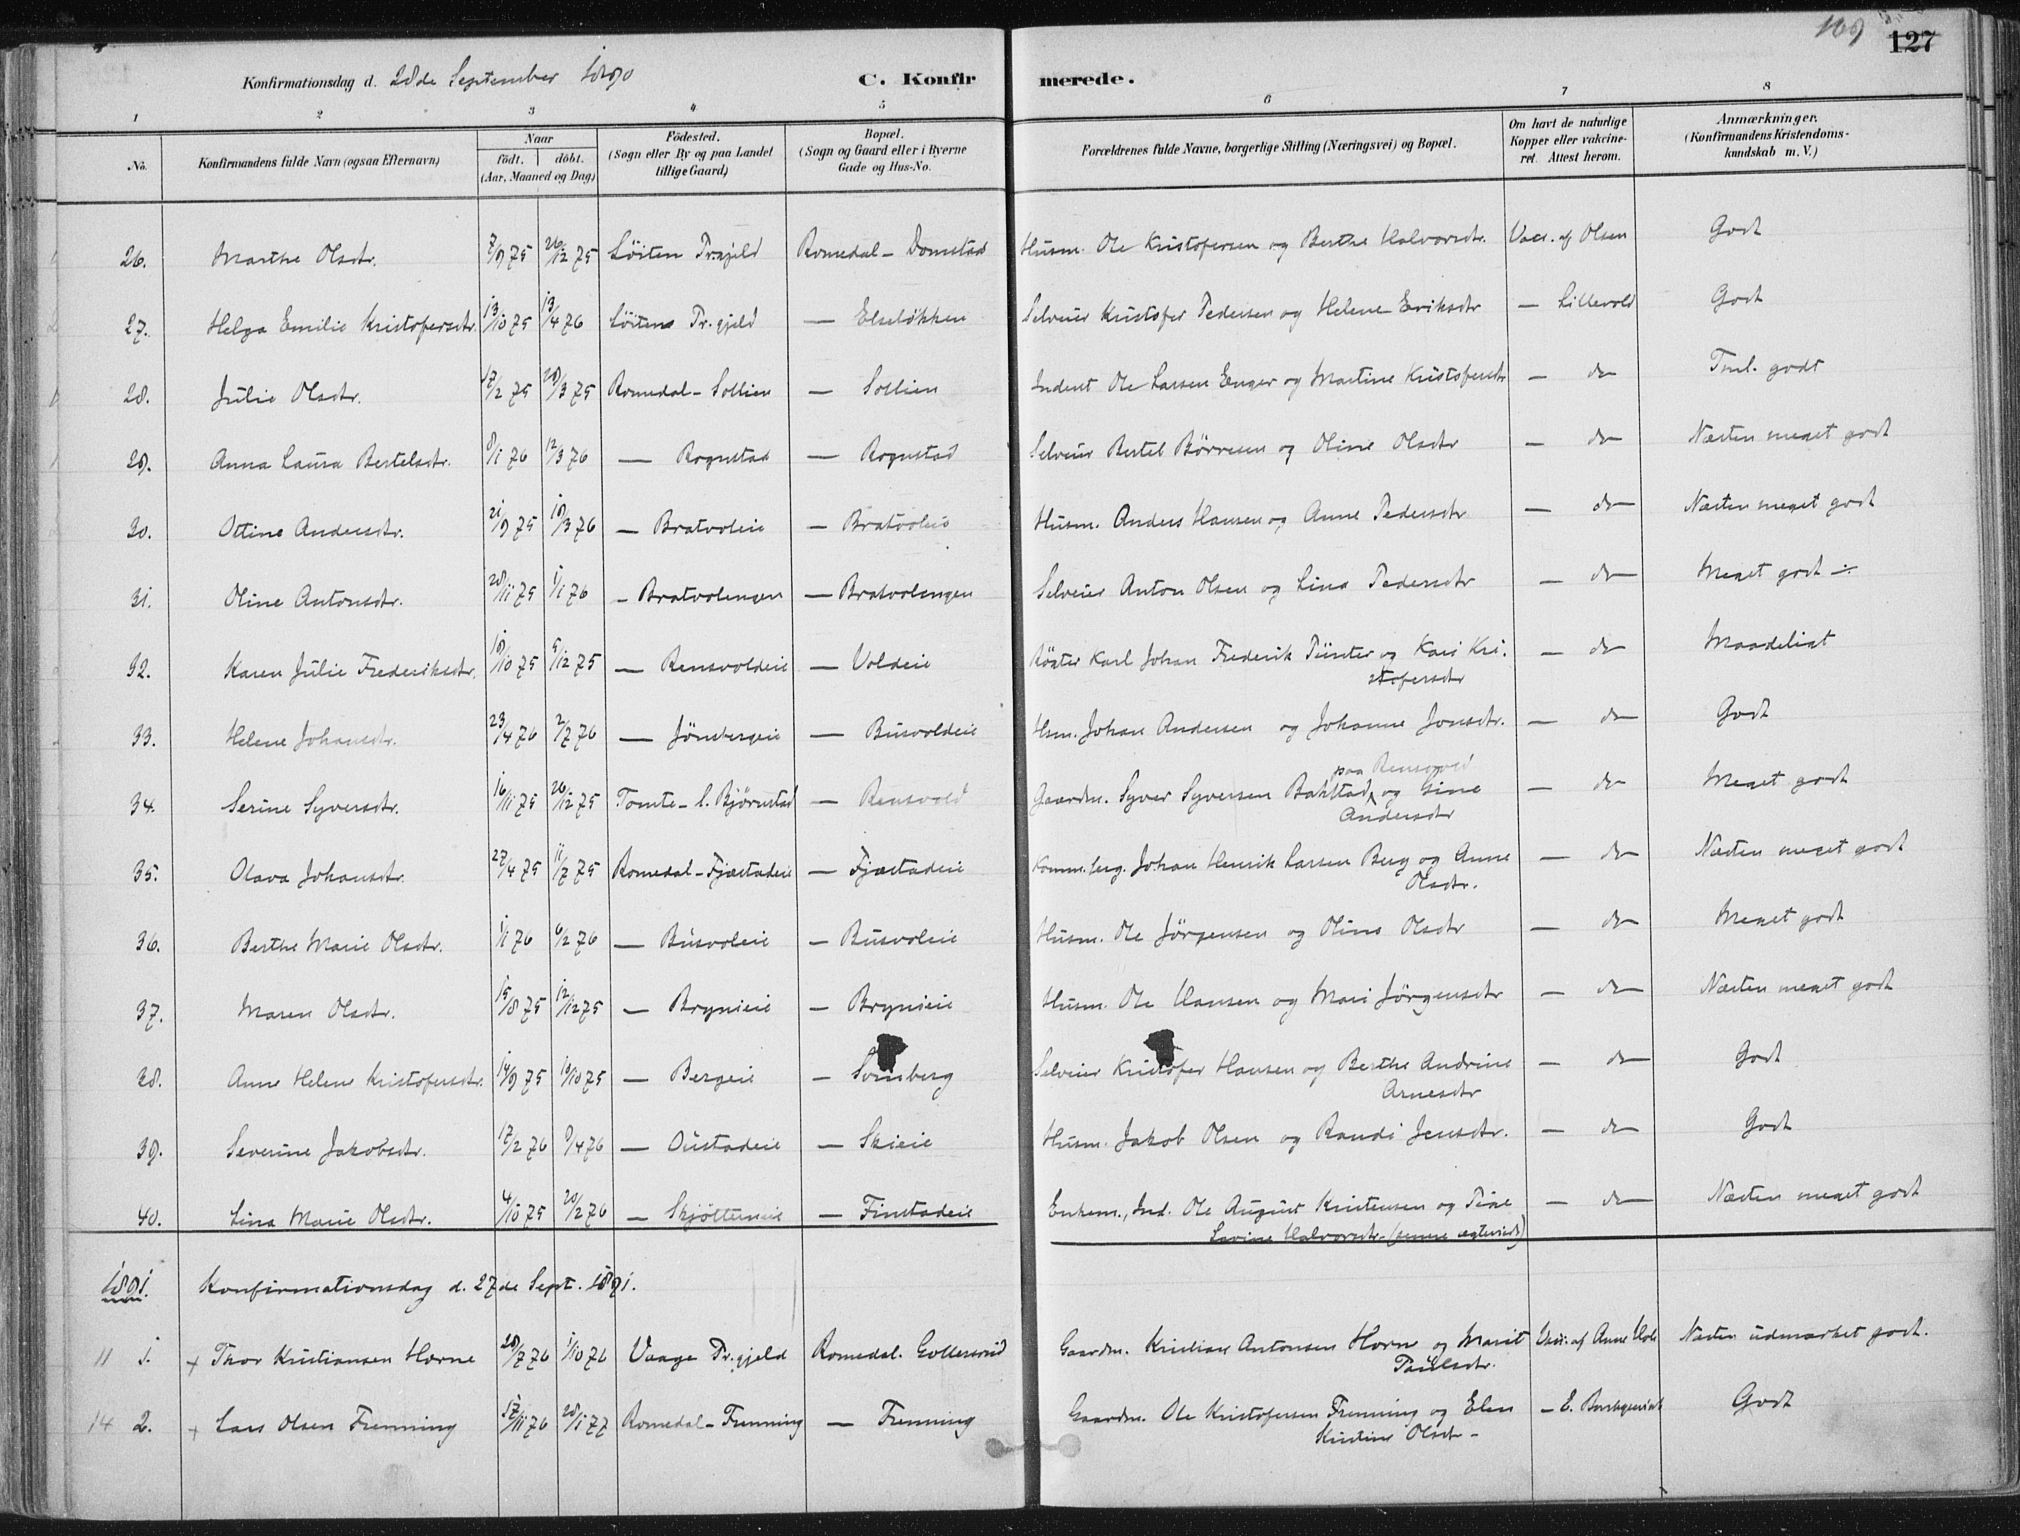 169 127
Konfirmationsdag d. 28de September 1890 C. Konfirmerede.
1 2 3 4 5 6 7 8
No. Konfirmandens fulde Navn (ogsaa Efternavn) Naar födt. döbt. (Aar, Maaned og Dag) Födested. (Sogn eller By og paa Landet tillige Gaard) Bopæl. (Sogn og Gaard eller i Byerne Gade og Hus-No. Forældrenes fulde Navne, borgerlige Stilling (Næringsvei) og Bopæl. Om havt de naturlige Kopper eller vakcineret. Attest herom. Anmærkninger. (Konfirmandens Kristendomskundskab m. V.)
26. Marthe Olsdtr. 7/9 75 26/12 75 Löiten Pr.gjeld Romedal - Domstad Husm. Ole Kristofersen og Berthe Halvorsdtr. Vacc. af Olsen Godt
27. Helga Emilie Kristofersdtr. 13/10 75 13/4 76 Löitens Pr.gjeld — Elseløkken Selveier Kristofer Pedersen og Helene Eriksdtr — Lillevold Godt
28. Julie Olsdtr. 17/2 75 29/3 75 Romedal - Sollien — Sollien Inderst Ole Larsen Enger og Martine Kristofersdtr — do Tml. godt
29. Anna Laura Bertelsdtr. 8/1 76 12/3 76 — Rognstad — Rognstad Selveier Bertel Börresen og Oline Olsdtr — do Næsten meget godt
30. Otine Andersdtr. 21/9 75 19/3 76 — Bratvoleie — Bratvoleie Husm. Anders Hansen og Anne Pedersdtr — do Næsten meget godt
31. Oline Antonsdtr. 28/11 75 1/1 76 — Bratvolengen — Bratvolengen Selveier Anton Olsen og Lina Pedersdtr — do Meget godt -:-
32. Karen Julie Frederiksdtr. 19/10 75 5/12 75 — Rensvoldeie — Voldeie Røgter Karl Johan Frederik Günter og Kari Kristofersdtr — do Maadeligt
33. Helene Johansdtr. 23/4 76 2/7 76 — Jönsbergeie — Busvoldeie Hsm. Johan Andersen og Johanne Jonsdtr. — do Godt
34. Serine Syversdtr. 16/11 75 26/12 75 Tomte - l. Bjørnstad — Rensvold Gaardm. Syver Syversen Bakstad paa Rensvold og Gine Andersdtr — do Meget godt
35. Olava Johansdtr. 27/4 75 11/7 75 Romedal - Fjæstadeie — Fjæstadeie Johan Henrik Larsen Berg og Anne Olsdtr. — do Næsten meget godt
36. Berthe Marie Olsdtr. 1/1 76 6/2 76 — Busvoleie — Busvoleie Husm. Ole Jörgensen og Oline Olsdtr — do Meget godt
37. Maren Olsdtr. 15/8 75 12/12 75 — Brynieie — Brynieie Husm. Ole Hansen og Mari Jörgensdtr — do Næsten meget godt
38. Anne Helene Kristofersdtr. 14/9 75 10/10 75 — Bergeie — Svensberg Selveier Kristofer Hansen og Berthe Andrine Arnesdtr — do Godt
39. Severine Jakobsdtr. 17/2 76 9/4 76 — Oustadeie — Skieie Husm. Jakob Olsen og Randi Jensdtr. — do Godt
40. Lina Marie Olsdtr. 4/10 75 20/2 76 — Skjötteneie — Finstadeie Enkem., Ind. Ole August Kristensen og Pige Lovine Halvorsdtr. (senere ægteviet) — do Næsten meget godt
1891. Konfirmationsdag d. 27de Sept. 1891.
11 1. + Thor Kristiansen Horne 28/7 76 1/10 76 Vaage Pr.gjeld Romedal. Gaardm. Kristian Antonsen Horn og Marit Paulsdtr. Vacc. af Anne Næsten udmærket godt.
14 2. + Lars Olsen Frenning 17/11 76 28/1 77 Romedal - Frenning — Frenning Gaardm. Ole Kristofersen Frenning og Elen Kristine Olsdtr — E. Godt